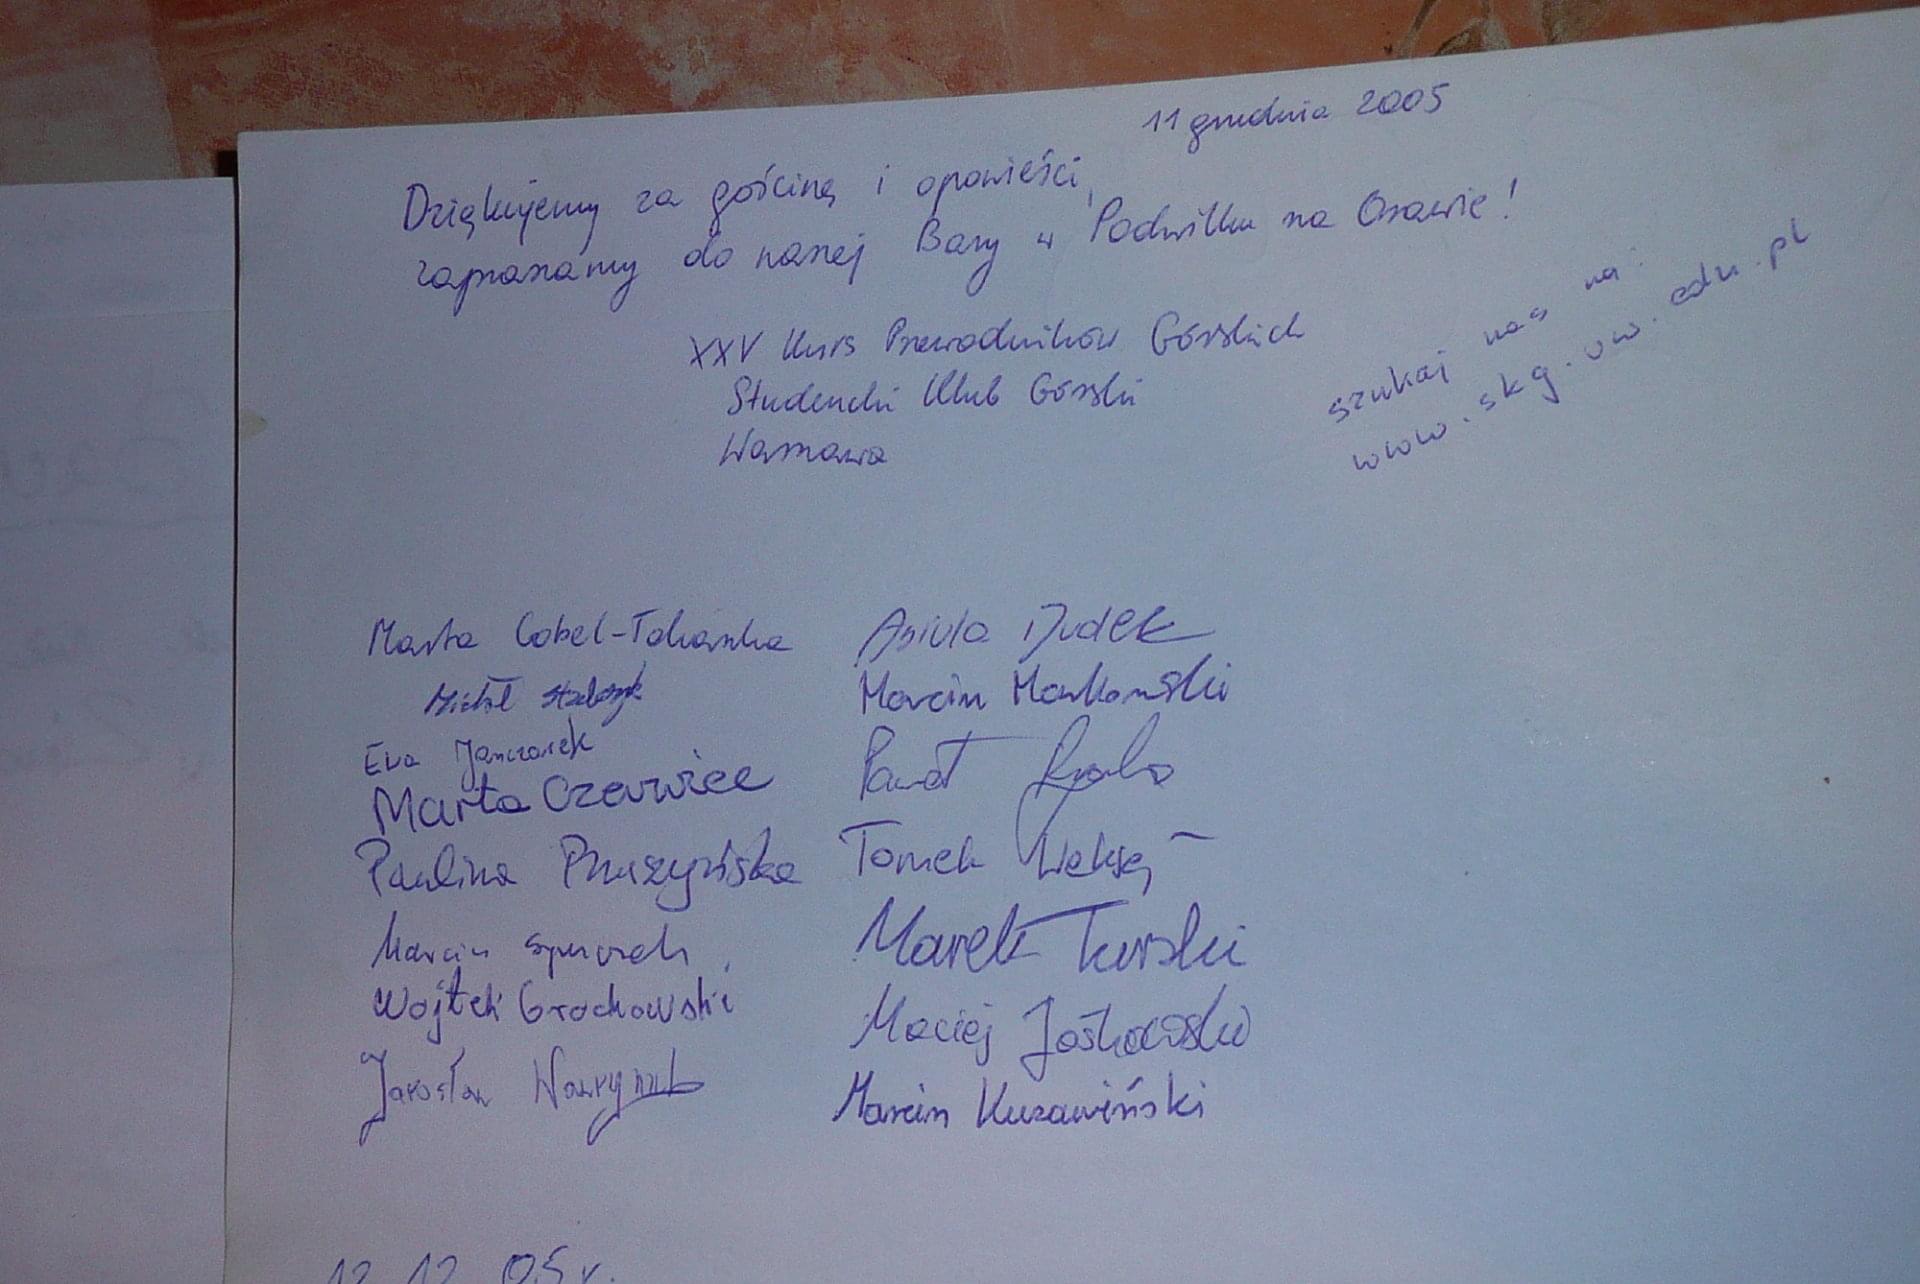 11 grudnia 2005
Dziękujemy za gościnę i opowieści,
zapraszamy do naszej Bazy w Podwilku na Orawie!
XXV Kurs Przewodników Górskich
Studencki Klub Górski
Warszawa
szukaj nas na:
www.skg.uw.edu.pl
Marta Gobel-Tokarska
Michał
Ewa Janczarek
Marta Czerwiec
Paulina Pruszyńska
Marcin
Wojtek Grochowski
Jarosław Wawrzyniak
Asiula Dudek
Marcin Markowski
Paweł
Tomek
Marek Turski
Maciej Jaśkowski
Marcin Kurawiński
12.12.05 r.